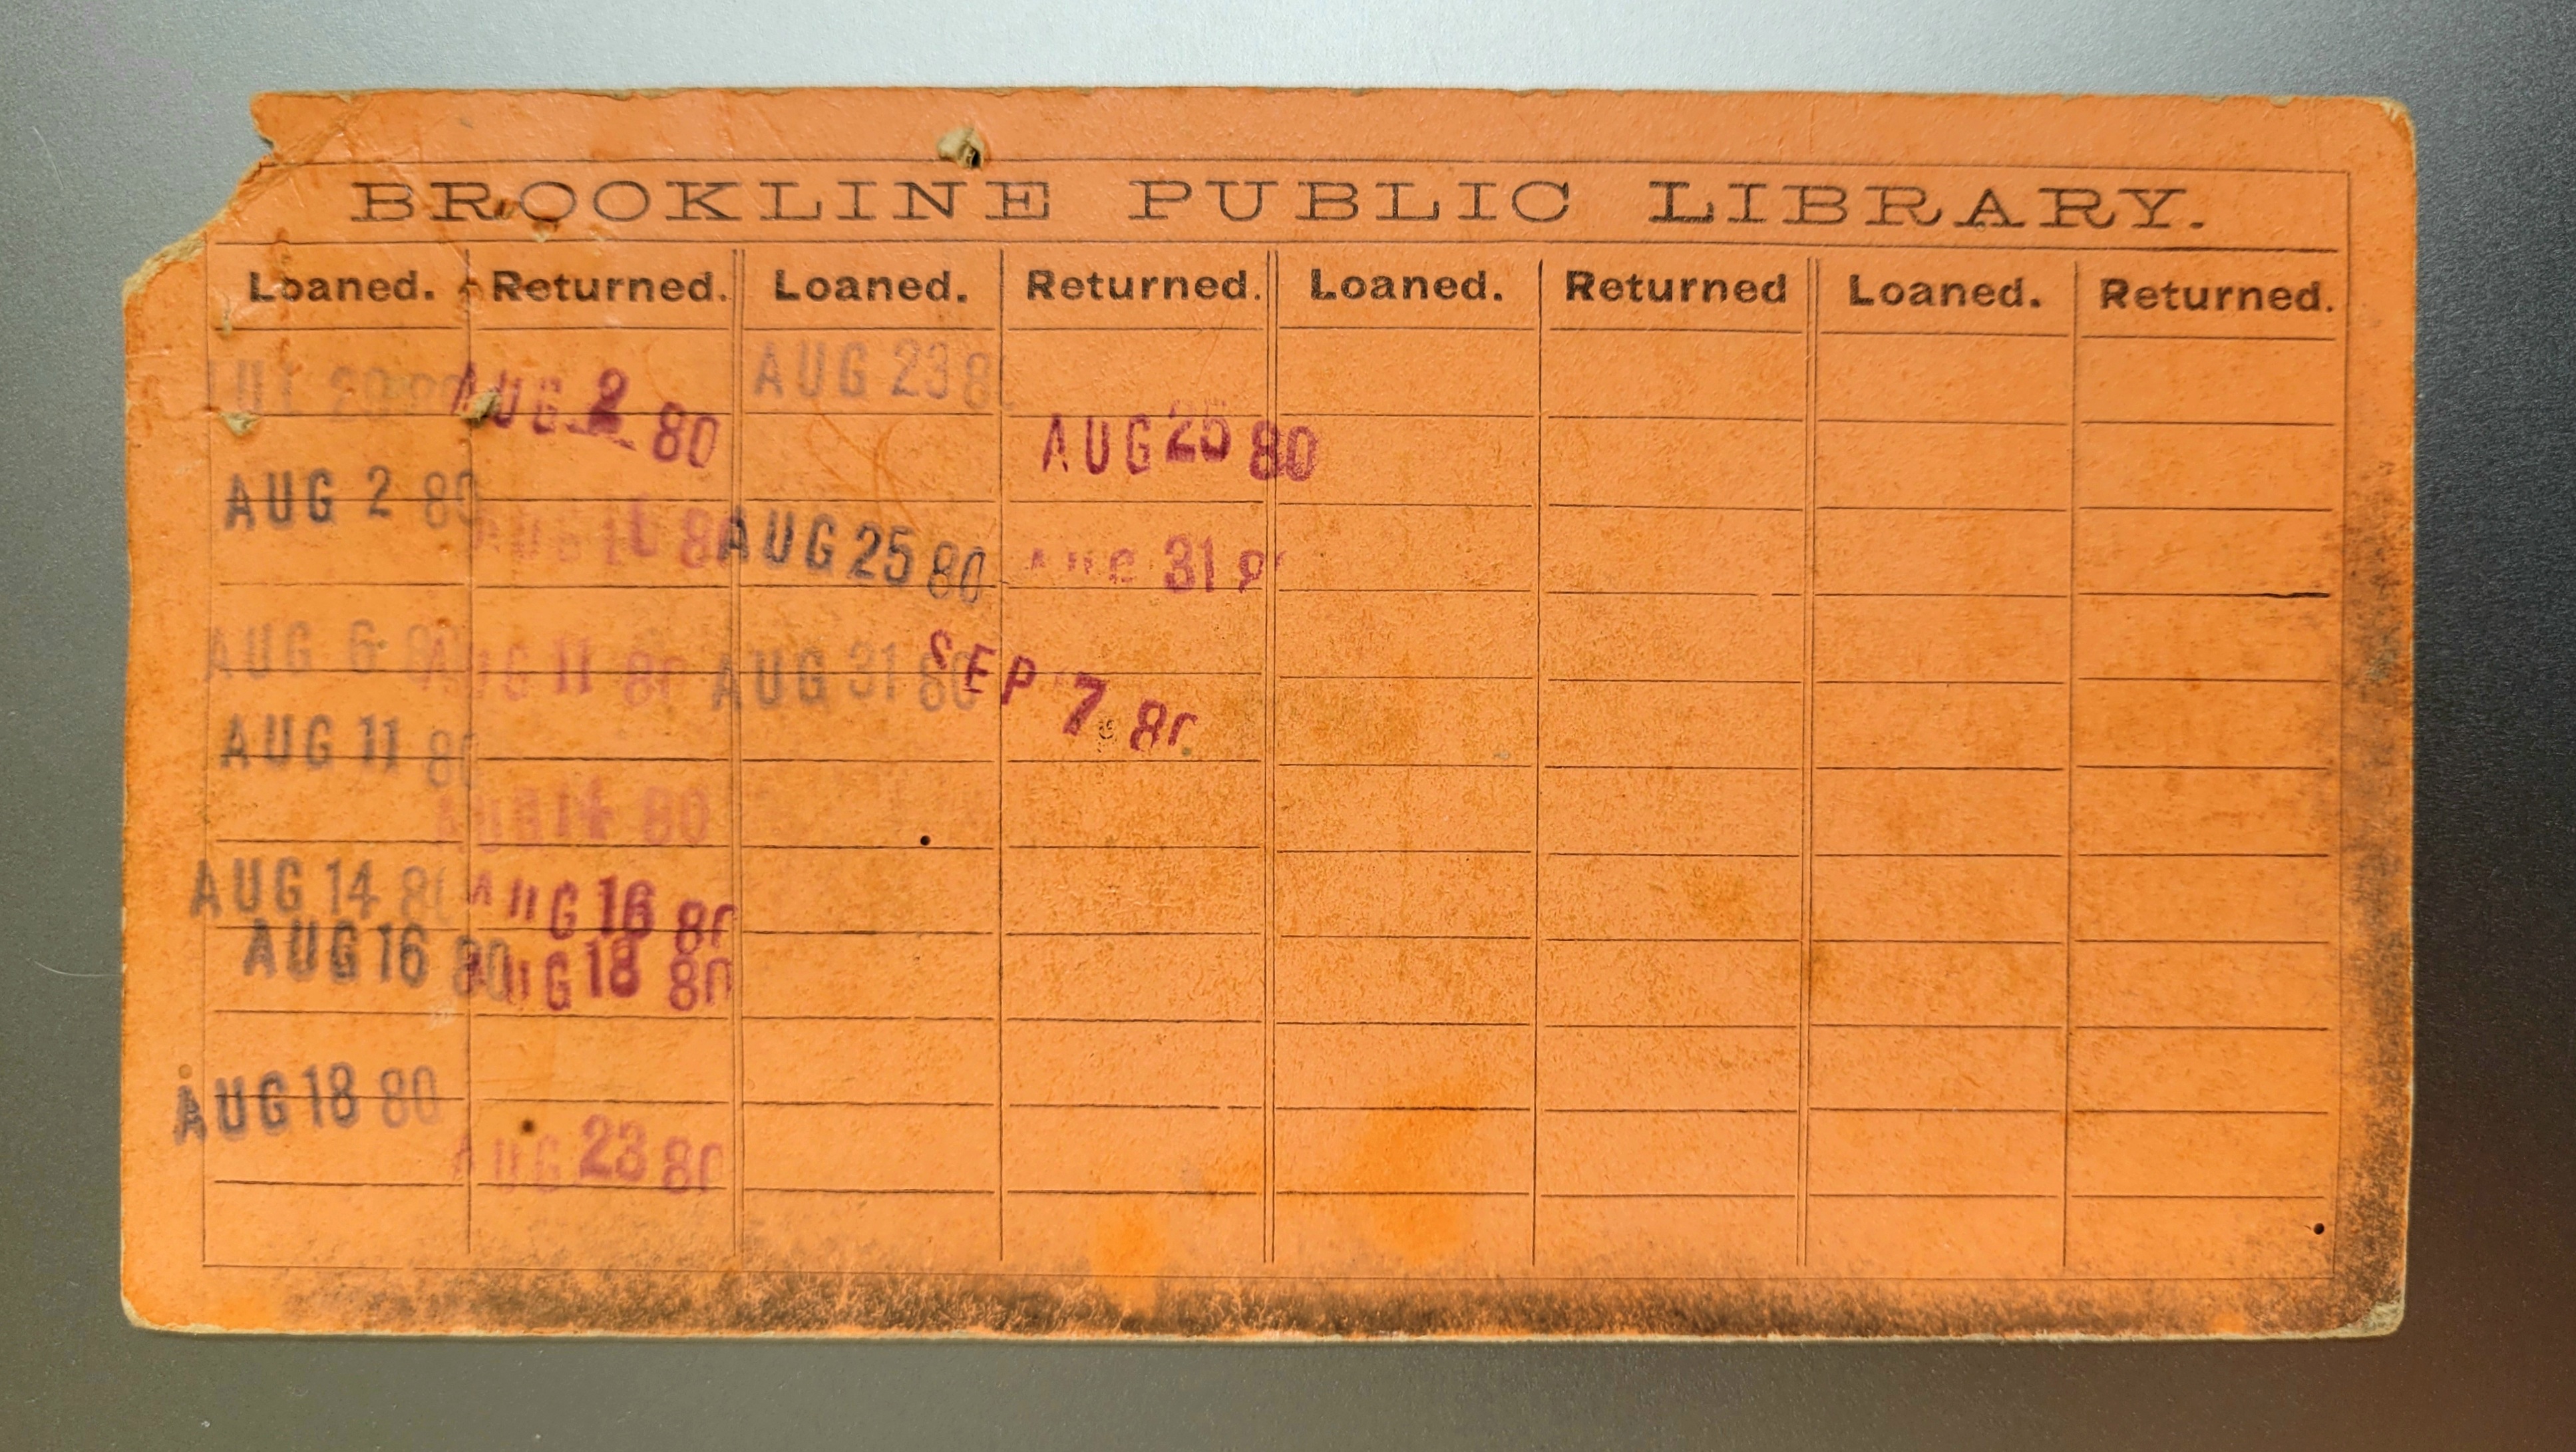 BROOKLINE PUBLIC LIBRARY.
Loaned. Returned. Loaned. Returned. Loaned. Returned Loaned. Returned.
AUG 2 80 AUG 23 80
AUG 25 80
AUG 2 80 AUG 80 AUG 25 80 AUG 31 80
AUG 6 80 AUG 11 80 AUG 31 80 SEP 7 80
AUG 11 80
AUG 14 80
AUG 14 80 AUG 16 80
AUG 16 80 AUG 18 80
AUG 18 80
AUG 23 80